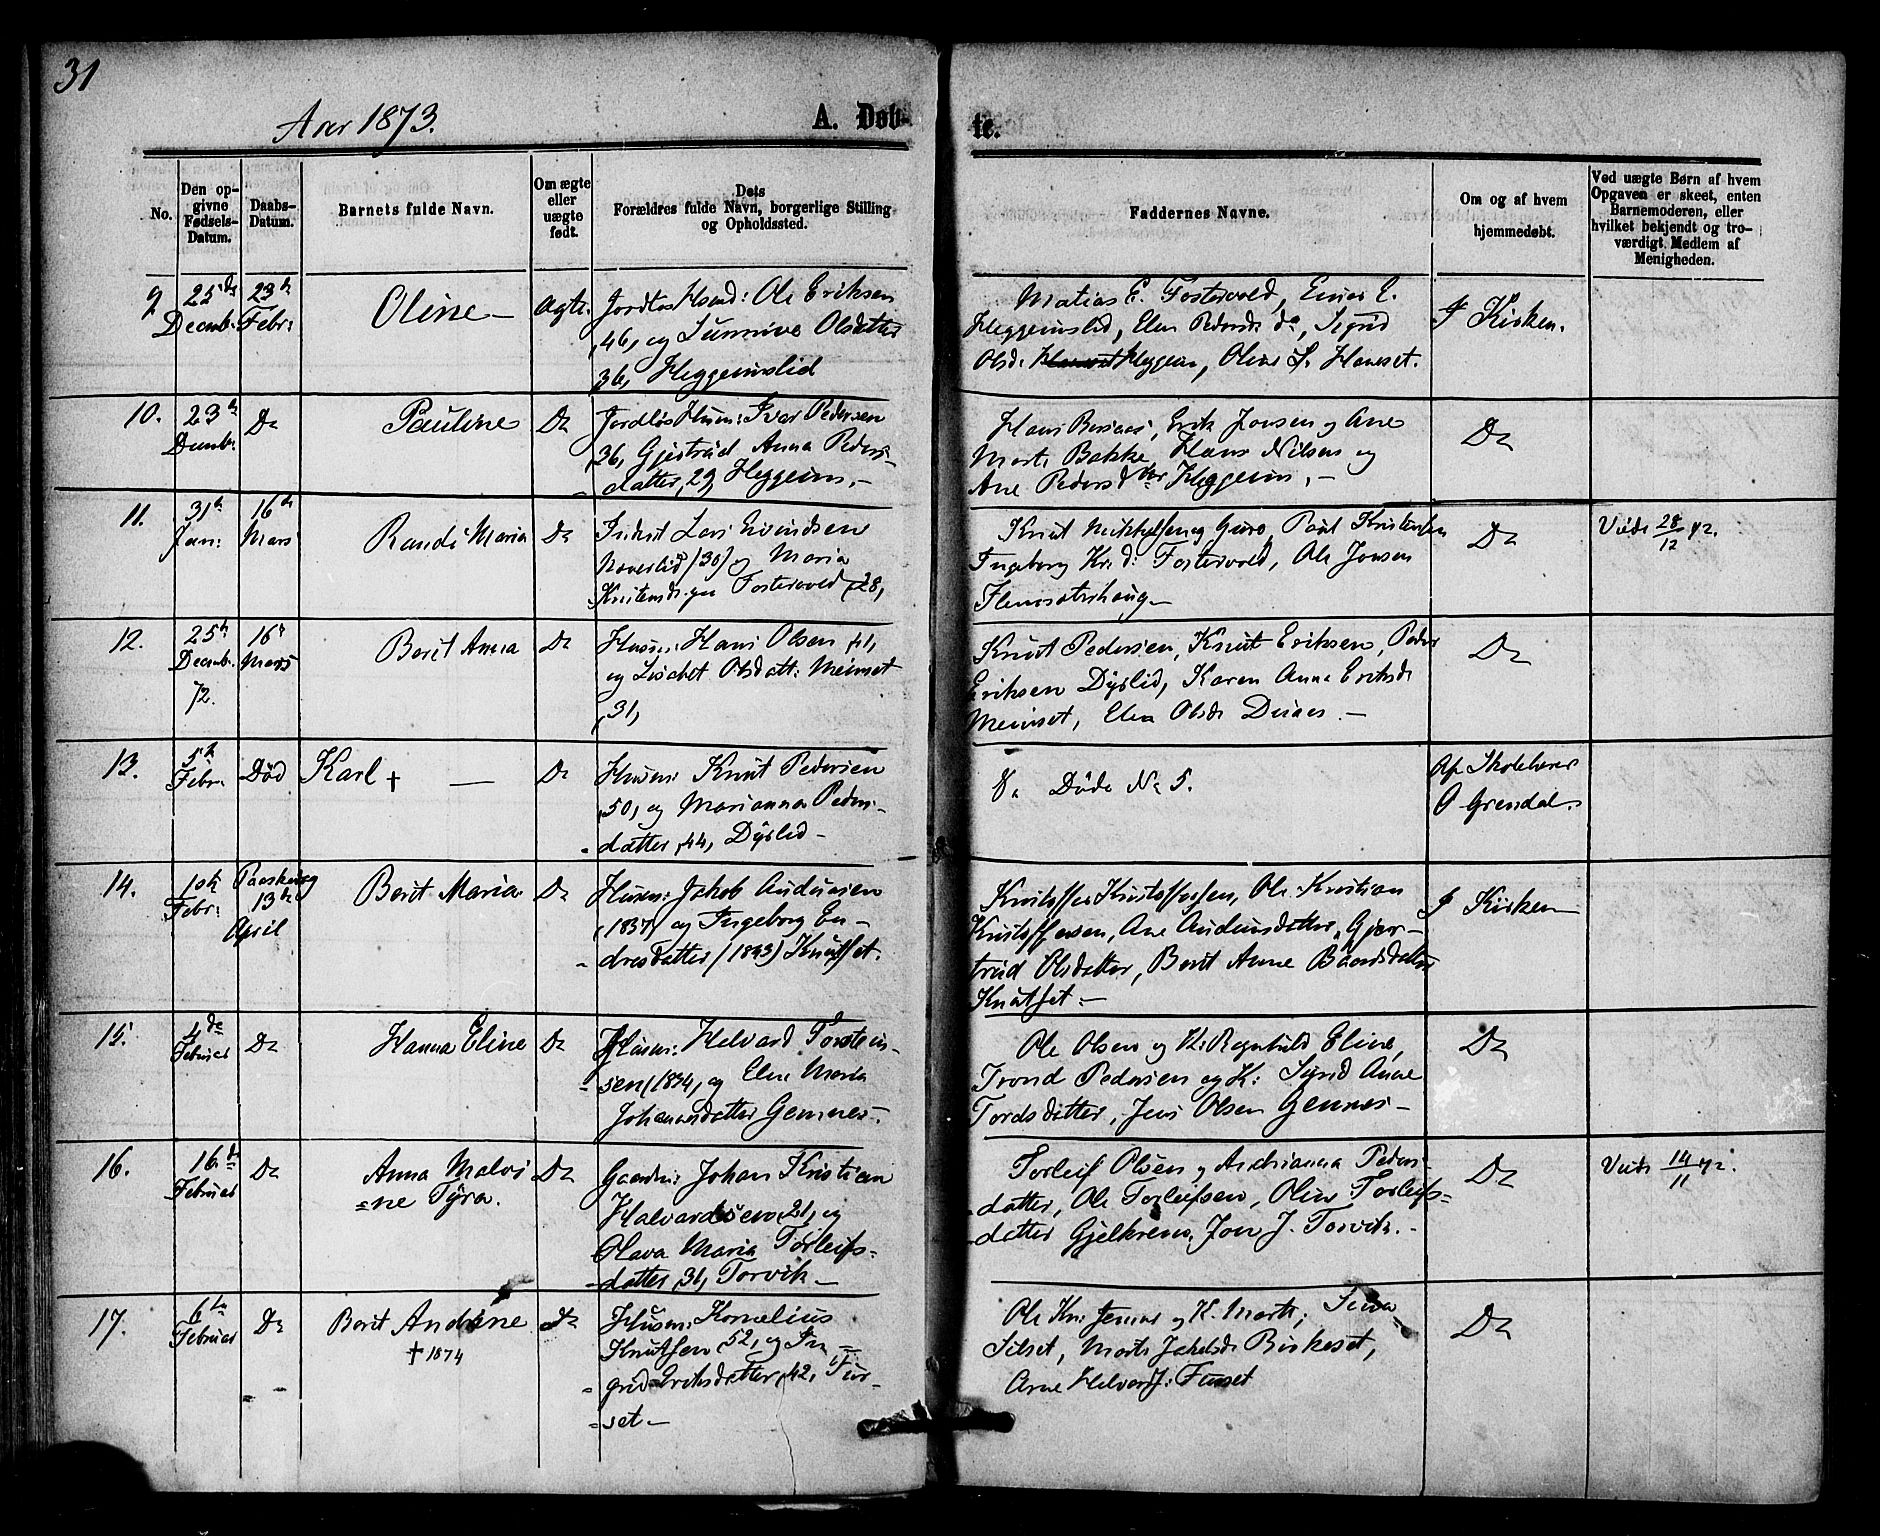 31
Aar 1873.
A. Døb-
te.
No.
Den op-
givne
Fødsels-
Datum.
Daabs-
Datum.
Barnets fulde Navn.
Om ægte
eller
uægte
født.
Dets
Forældres fulde Navn, borgerlige Stilling
og Opholdssted.
Faddernes Navne.
Om og af hvem
hjemmedøbt.
Ved uægte Børn af hvem
Opgaven er skeet, enten
Barnemoderen, eller
hvilket bekjendt og tro-
værdigt Medlem af
Menigheden.
9
25de
Decemb.
23de
Febr:
Oline –
Ægte
Ole Eriksen
46, og Sunniva Olsdatter
36, Heggeimslid
Matias E. Fostervold, Einar E.
Heggeimslid, Elen Pedersd. do, Sigrid
Olsd. Heggem, Oline L. Haneset.
I Kirken.
10.
23de
Do
Pauline
Do
Jordløs Husm: Ivar Pedersen
36, Gjertrud Anna Peders-
datter, 29, Heggeim. –
Erik Jonsen og Ane
Marta Bakke, Hans Nilsen og
Ane Heggeim. –
Do
11.
31te
Jan:
16de
Mars
Randi Maria
Do
Lars Eivindsen
(30) og Maria
Fostervold, 28,
Knut Mikkelsen og Guro, Paul Kristensen
Ingeborg Kr.d: Fostervold, Ole Jonsen
Flemsæterhaug –
Do
Viede 28/12 72.
12.
25de
Decemb.
72.
16de
Mars
Berit Anna
Do
Husm: Hans Olsen, 41,
og Lisabet Olsdatt: Meinset
31,
Knut Pedersen, Knut Eriksen, Peder
Eriksen Dyslid, Karen Anna Eriksd.
Meinset, Elen Olsd.
Do
13.
5te
Febr.
Død
Karl † –
Do
Husm: Knut Pedersen
50, og Marianna Peders-
datter, 44, Dyslid –
Døde No 5.
Af Skolelærer
O Grendal.
14.
1ste
Febr:
Paaskedag
13de
April
Berit Maria
Do
Husm: Jakob Audunsen
(1837) og Ingeborg En-
dresdatter (1843) Knutset.
Kristoffer Kristoffersen, Ole Kristian
Kristoffersen, Ane Audunsdatter, Gjer-
trud Olsdatter, Berit Anne Baardsdatter
Knutset. –
I Kirken –
15.
4de
Februar
Do
Hanna Eline
Do
Husm: Helvard Torstein-
sen, og Eline Maria
Johannesdatter Gennes –
Ole Olsen og K: Ragnhild Eline,
Trond Pedersen og K: Sigrid Anne
Tordsdatter, Jens Olsen Gennes –
Do
16.
16de
Februar
Do
Anna Malvi
=ne Tyra.
Do
Gaardm: Johan Kristian
Halvardsen, 21, og
Olava Maria Torleifs-
datter, 31, Torvik –
Torleif Olsen og Andrianna Peders-
datter, Ole Torleifsen, Oline Torleifs-
datter Gjelkrem, Jon J. Torvik. –
Do
Viede 14/11 72.
17.
6te
Februar
Do
Berit Andrine
† 1874
Do
Husm: Kornelius
Knutsen, 52, og In-
grid Eriksdatter, 42, Fur-
set –
Ole Kn: og K. Marta,
Silset, Marta Jakobsd. Birkeset,
Arne Helvard J: Furset
Do